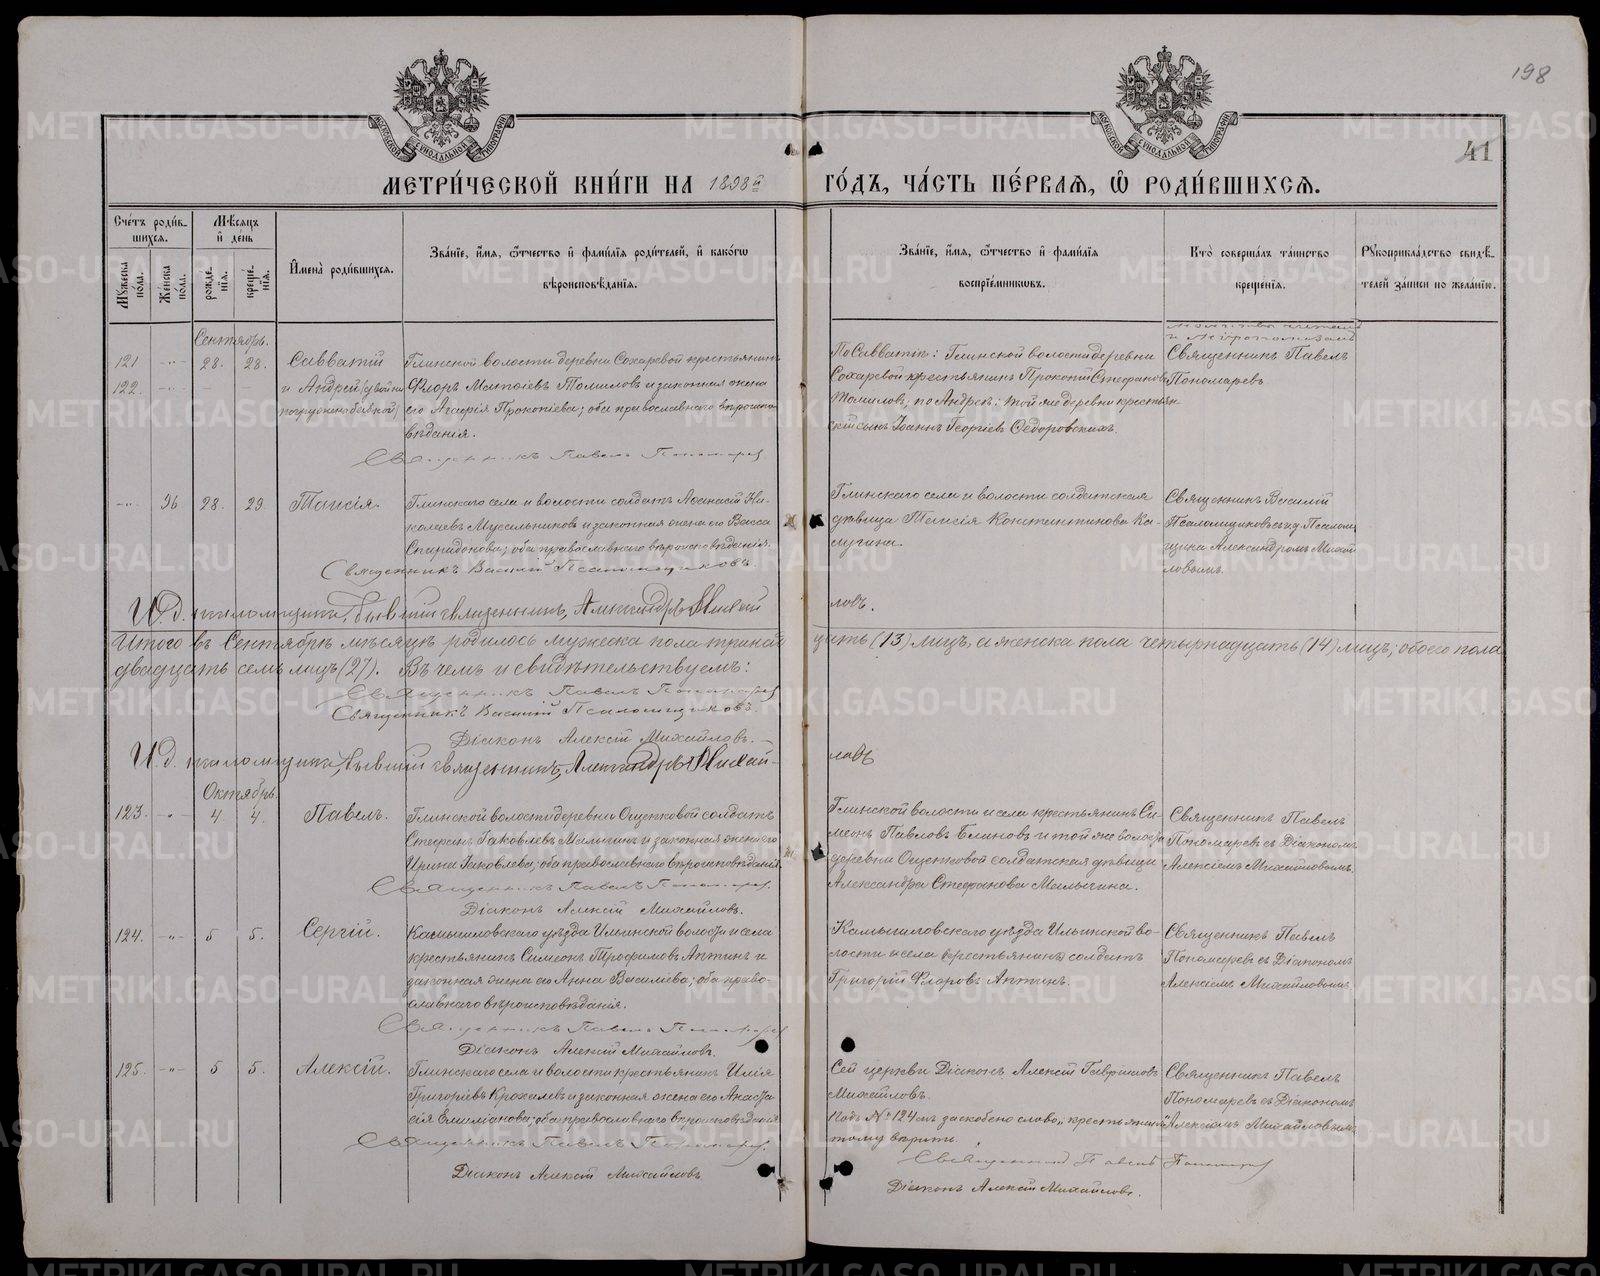 198
41
МЕТРИ́ЧЕСКОЙ КНИ́ГИ НА 1898й ГО́ДЪ, ЧА́СТЬ ПЕ́РВАЯ, Ѿ РОДИ́ВШИХСЯ.
Сче́тъ роди́в-
шихся.
Мѣ́сяцъ
и де́нь
Му́жеска
по́ла.
Же́нска
по́ла.
рожде-
нія.
креще́-
нія.
Имена̀ роди́вшихся.
Зва́ніе, и́мя, ѿтчество и фами́лія роди́телей, и како́гѡ
вѣроисповѣ́данія.
Зва́ніе, и́мя, ѿтчество и фами́лія
воспріе́мникѡвъ.
Кто̀ соверша́лъ та́инство
креще́нія.
Рꙋкоприкла́дство свидѣ́-
телей за́писи по жела́нію.
Сентябрь.
121 -"- 28. 28. Савватій
122.
и Андрей
Глинской волости деревни Сохаревой крестьянинъ
Флоръ Матѳіевъ Томиловъ и законная жена
его Агафія Прокопіева; оба православнаго вѣроиспо-
вѣданія.
Священникъ Павелъ Пономаревъ
По Савватіѣ: Глинской волости деревни
Сохаревой крестьянинъ Прокопій Стефановъ
Томиловъ, по Андреѣ: той же деревни крестьян-
скій сынъ Іоаннъ Георгіевъ Ѳедоровскихъ.
Священникъ Павелъ
Пономаревъ
-"- 96 28. 29 Таисія.
Глинскаго села и волости солдатъ Аѳанасій Ни-
колаевъ Мусальниковъ и законная жена его Васса
Спиридонова; оба православнаго вѣроисповѣданія.
Священникъ Василій Псаломщиковъ.
Глинскаго села и волости солдатская
дѣвица Таисія Константинова Ка-
лугина.
Священникъ Василій
Псаломщиковъ съ и. д. Псалом-
щика Александромъ Михай-
ловымъ.
И. д. псаломщика, бывшій священникъ, Александръ Михай
ловъ.
Итого въ Сентябрѣ мѣсяцѣ родилось мужеска пола тринад
цать (13) лицъ, а женска пола четырнадцать (14) лицъ; обоего пола
двадцать семь лицъ (27). Въ чемъ и свидѣтельствуемъ:
Священникъ Павелъ Пономаревъ
Священникъ Василій Псаломщиковъ.
Діаконъ Алексій Михайловъ.
И. д. псаломщика, бывшій священникъ, Александръ Михай-
ловъ
Октябрь.
123. -"- 4 4. Павелъ.
Глинской волости деревни Ощепковой солдатъ
Стефанъ Іаковлевъ Малыгинъ и законная жена его
Ирина Іаковлева; оба православнаго вѣроисповѣданія.
Священникъ Павелъ Пономаревъ.
Діаконъ Алексій Михайловъ.
Глинской волости и села крестьянинъ Си-
меонъ Павловъ Блиновъ и той же волости
деревни Ощепковой солдатская дѣвица
Александра Стефанова Малыгина.
Священникъ Павелъ
Пономаревъ съ Діакономъ
Алексіемъ Михайловымъ.
124. -"- 5 5. Сергій.
Камышловскаго уѣзда Ильинской волости и села
крестьянинъ Симеонъ Трофимовъ Аптинъ и
законная жена его Анна Василіева; оба право-
славнаго вѣроисповѣданія.
Священникъ Павелъ Пономаревъ
Діаконъ Алексій Михайловъ.
Камышловскаго уѣзда Ильинской во-
лости и села (крестьянинъ) солдатъ
Григорій Флоровъ Аптинъ.
Священникъ Павелъ
Пономаревъ съ Діакономъ
Алексіемъ Михайловымъ.
125. -"- 5 5. Алексій.
Глинскаго села и волости крестьянинъ Илія
Григоріевъ Крохалевъ и законная жена его Анаста-
сія Емиліанова; оба православнаго вѣроисповѣданія
Священникъ Павелъ Пономаревъ.
Діаконъ Алексій Михайловъ
Сей церкви Діаконъ Алексій Гавриловъ
Михайловъ.
Подъ № 124мъ заскоблено слово „крестьянинъ"
тому вѣрить.
Священникъ Павелъ Пономаревъ
Діаконъ Алексій Михайловъ.
Священникъ Павелъ
Пономаревъ съ Діакономъ
Алексіемъ Михайловымъ.
METRIKI.GASO-URAL.RU